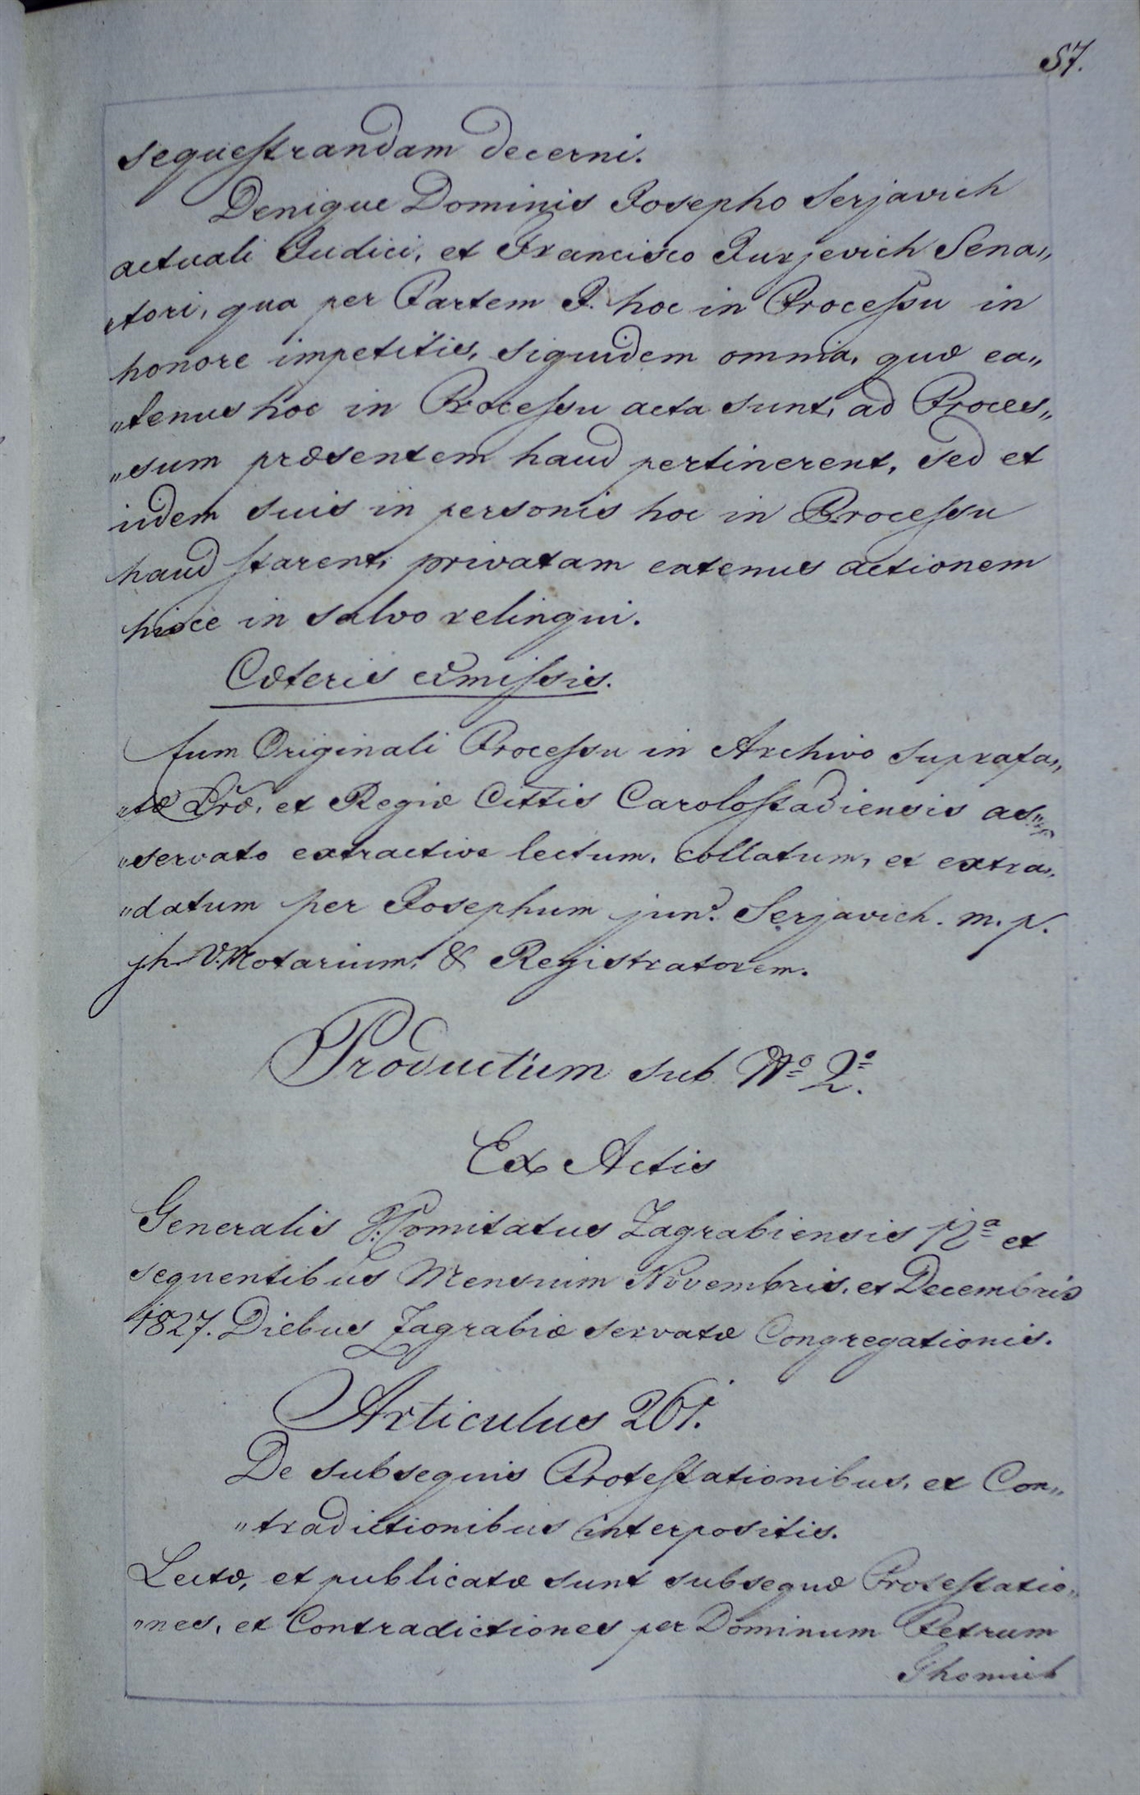 57.
sequestrandam decerni.
Denique Dominis Josepho Serjavich
actuali Judici, et Francisco Jurjevich Sena„
„tori, qua per Partem J. hoc in Processu in
honore impetitis, siquidem omnia, quæ ea„
„tenus hoc in Processu acta sunt, ad Proces„
„sum præsentem haud pertinerent, sed et
iidem suis in personis hoc in Processu
haud starent, privatam eatenus actionem
hisce in salvo relinqui.
Cæteris exmissis.
Cum Originali Processu in Archivo suprafa„
„tæ Lræ, et Regiæ Cittis Carolostadiensis as„
„servato extractive lectum, collatum, et extra„
„datum per Josephum junr. Serjavich. m. p.
jh V. Notarium, & Registratorem.
Productum sub No 2o.
Ex Actis
Generalis J. Comitatus Zagrabiensis 12a et
sequentibus Mensium Novembris, et Decembris
1827. Diebus Zagrabiæ servatæ Congregationis.
Articulus 261.
De subsequis Protestationibus, et Con„
„tradictionibus interpositis.
Lectæ, et publicatæ sunt subsequæ Protestatio„
„nes, et Contradictiones per Dominum Petrum